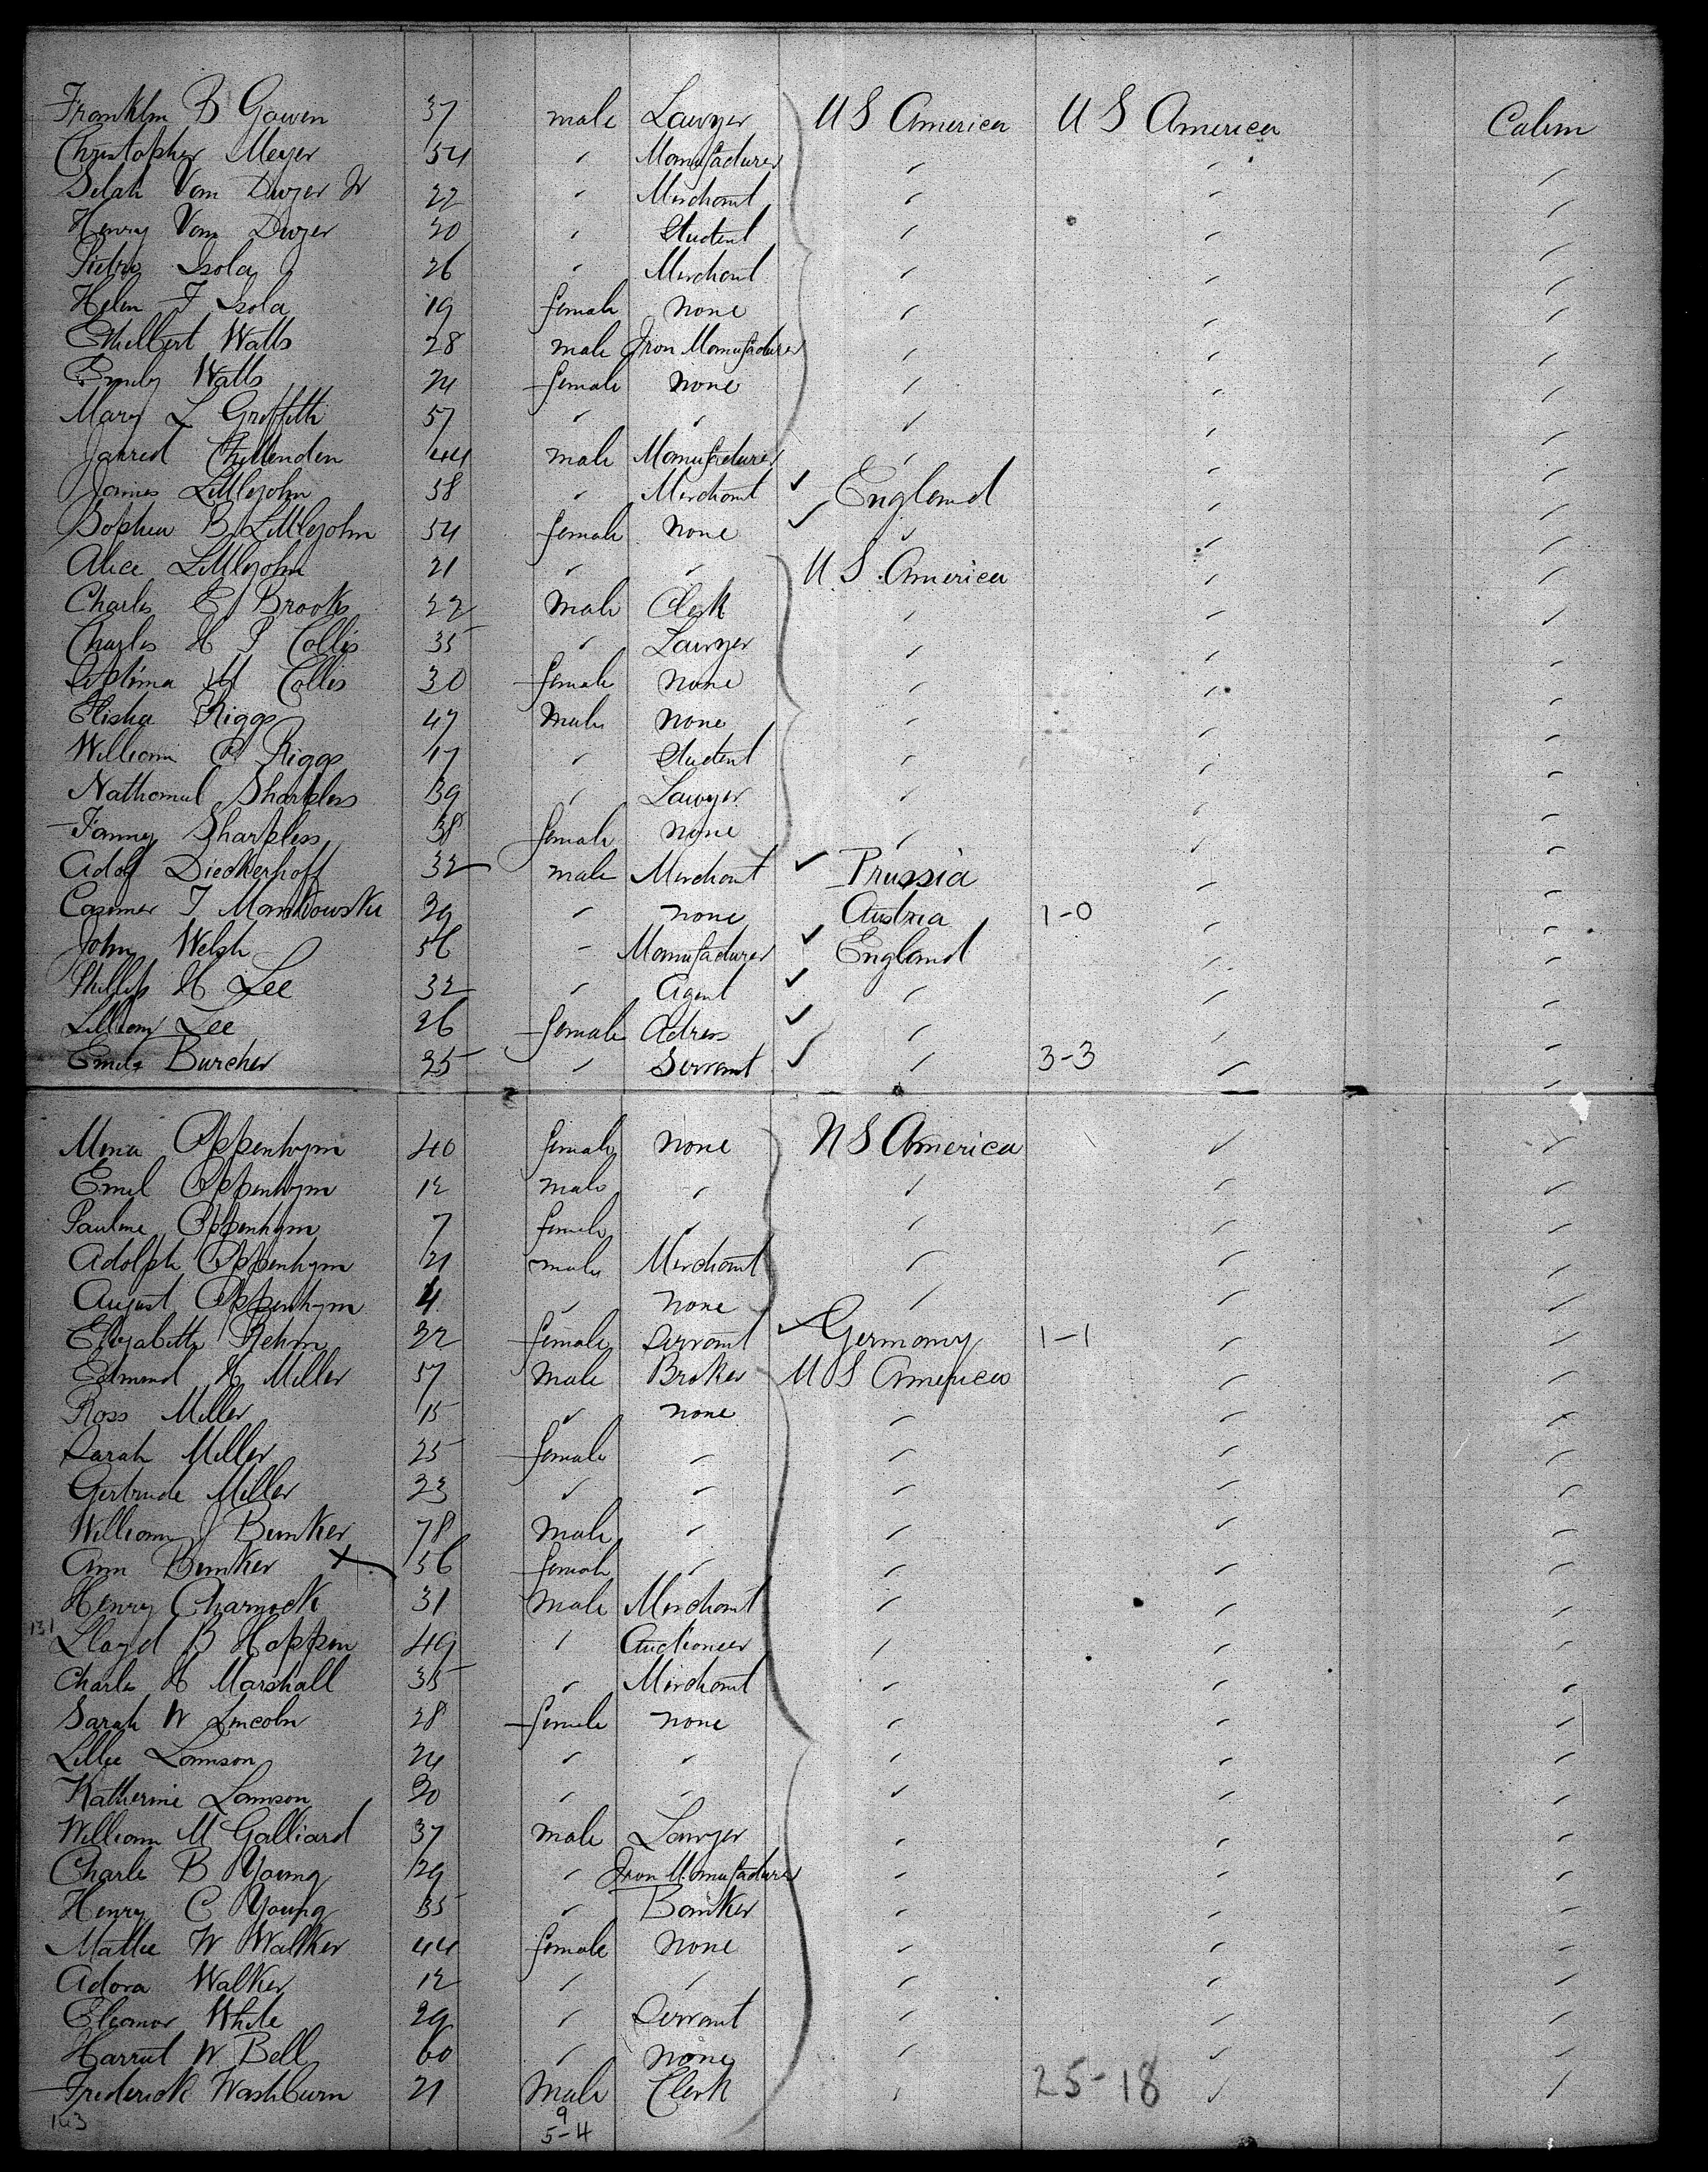 Franklin B Gowen 37 male Lawyer U S America U S America Cabin
Christopher Meyer 54 " Manufacturer " " "
Selah Van Duzer Jr 22 " Merchant " " "
Henry Van Duzer 20 " Student " " "
Pietro Isola 26 " Merchant " " "
Helen F Isola 19 female none " " "
Ethelbert Watts 28 male Iron Manufacturer " " "
Emily Watts 24 female none " " "
Mary L Griffith 57 " " " " "
Jarred Chittenden 44 male Manufacturer " " "
James Littlejohn 58 " Merchant England " "
Sophia B Littlejohn 54 female none " " "
Alice Littlejohn 21 " " U S America " "
Charles E Brooks 22 male Clerk " " "
Charles H T Collis 35 " Lawyer " " "
Septima M Collis 30 female none " " "
Elisha Riggs 47 male none " " "
William Riggs 17 " Student " " "
Nathanial Sharpless 39 " Lawyer " " "
Fanny Sharpless 38 female none " " "
Adolf Diedkerhoff 32 male Merchant Prussia " "
Casimer T Mankowski 39 " none Austria 1-0 " "
John Welsh 56 " Manufacturer England " "
Phillip H Lee 32 " Agent " " "
Lilliam Lee 26 female Actress " " "
Emily Burcher 35 " Servant " 3-3 " "
Mina Oppenhym 40 female none U S America " "
Emil Oppenhym 12 male " " " "
Pauline Oppenhym 7 female " " " "
Adolph Oppenhym 21 male Merchant " " "
August Oppenhym 4 " none " " "
Elizabeth Rehm 32 female Servant Germany 1-1 " "
Edmund H Miller 57 male Broker U S America " "
Ross Miller 15 " none " " "
Sarah Miller 25 female " " " "
Gertrude Miller 23 " " " " "
William J Bunker 78 male " " " "
Ann Bunker X 56 female " " " "
Henry Charnock 31 male Merchant " " "
131 Lloyd B Hoppin 49 " Auctioneer " " "
Charles H Marshall 35 " Merchant " " "
Sarah W Lincoln 28 female none " " "
Lillie Lamson 24 " " " " "
Katherine Lamson 20 " " " " "
William M Galliard 37 male Lawyer " " "
Charles B Young 29 " Iron Manufacturer " " "
Henry C Young 35 " Banker " " "
Mattie W Walker 44 female none " " "
Adora Walker 12 " " " " "
Eleanor White 29 " Servant " " "
Harriet W Bell 60 " none " " "
Frederick Washburn 21 male Clerk " 25-18 " "
163 9
5-4